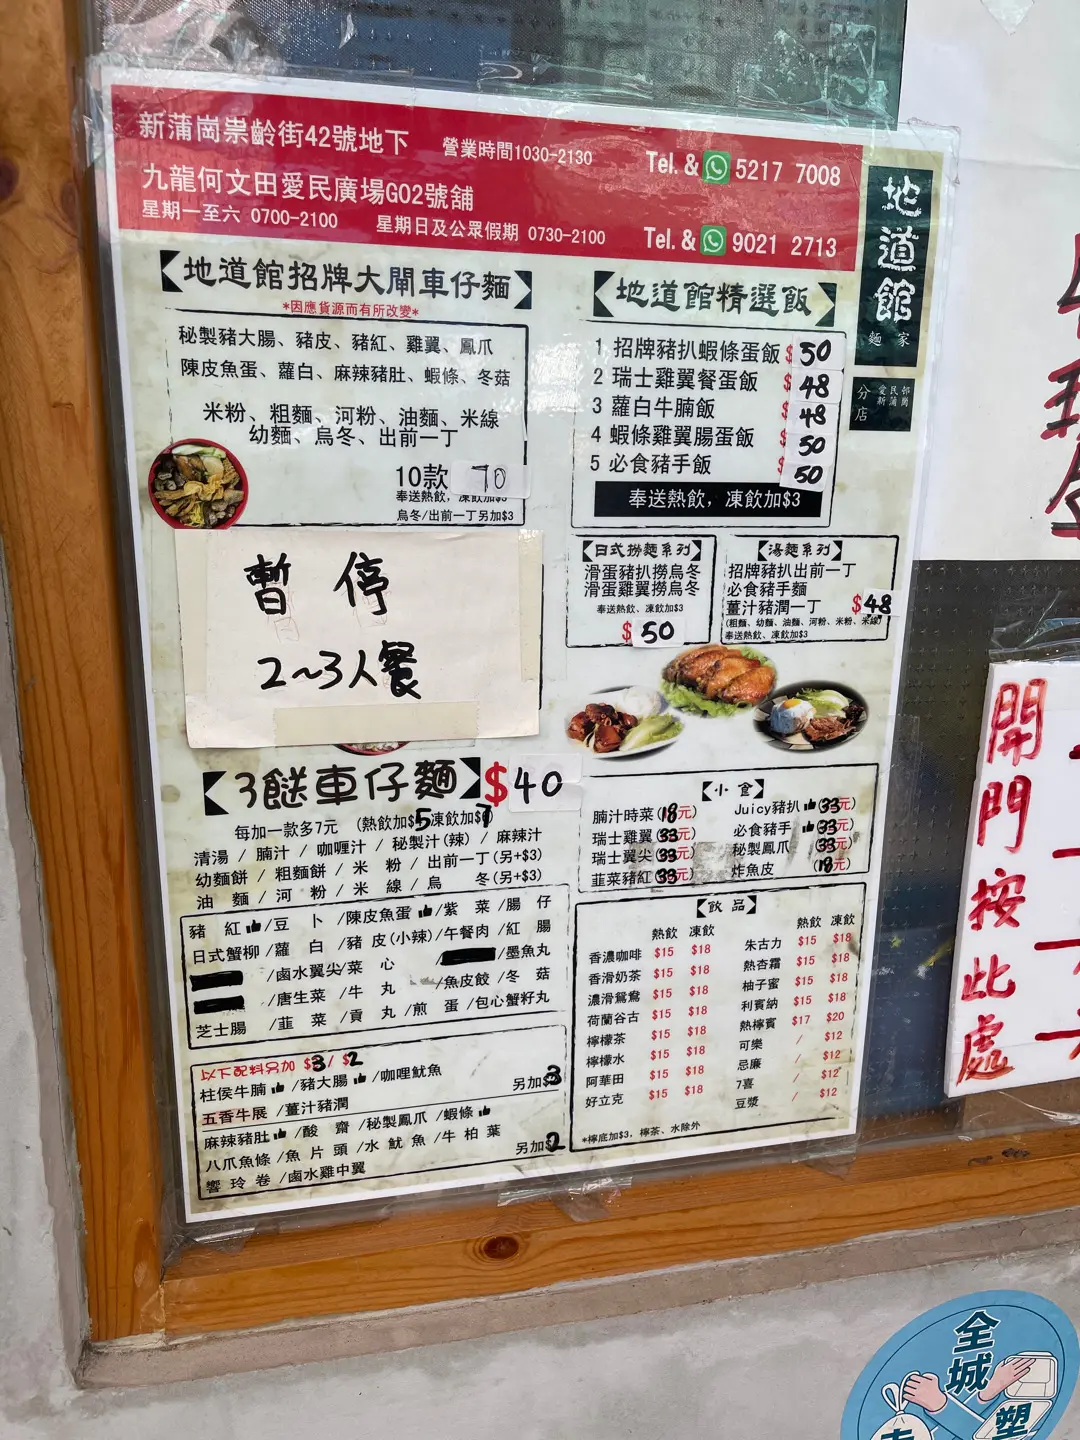 新蒲崗崇齡街42號地下 營業時間1030-2130 Tel. & 5217 7008
九龍何文田愛民廣場G02號舖
星期一至六 0700-2100 星期日及公眾假期 0730-2100 Tel. & 9021 2713
地道館
麵家
愛民邨
新蒲崗
分店
【地道館招牌大閘車仔麵】
*因應貨源而有所改變*
秘製豬大腸、豬皮、豬紅、雞翼、鳳爪
陳皮魚蛋、蘿白、麻辣豬肚、蝦條、冬菇
米粉、粗麵、河粉、油麵、米線
幼麵、烏冬、出前一丁
10款 70
奉送熱飲，凍飲加$3
烏冬/出前一丁另加$3
【地道館精選飯】
1 招牌豬扒蝦條蛋飯 $50
2 瑞士雞翼餐蛋飯 $48
3 蘿白牛腩飯 48
4 蝦條雞翼腸蛋飯 $50
5 必食豬手飯 50
奉送熱飲，凍飲加$3
暫停
2~3人餐
【日式撈麵系列】
滑蛋豬扒撈烏冬
滑蛋雞翼撈烏冬
奉送熱飲、凍飲加$3
$50
【湯麵系列】
招牌豬扒出前一丁
必食豬手麵
薑汁豬潤一丁 $48
(粗麵、幼麵、油麵、河粉、米粉、米線)
奉送熱飲、凍飲加$3
【3餸車仔麵】$40
每加一款多7元 (熱飲加$5凍飲加$7
清湯 / 腩汁 / 咖喱汁 / 秘製汁(辣) / 麻辣汁
幼麵餅 / 粗麵餅 / 米 粉 / 出前一丁(另+$3)
油 麵 / 河 粉 / 米 線 / 烏 冬(另+$3)
豬 紅/豆 卜/陳皮魚蛋/紫 菜/腸 仔
日式蟹柳/蘿 白/豬 皮(小辣)/午餐肉/紅 腸
/鹵水翼尖/菜 心 /墨魚丸
/唐生菜/牛 丸 /魚皮餃/冬 菇
芝士腸 /韮 菜/貢 丸/煎 蛋/包心蟹籽丸
以下配料另加 $3/ $2
柱侯牛腩/豬大腸/咖哩魷魚 另加$3
五香牛展/薑汁豬潤
麻辣豬肚/酸 齋/秘製鳳爪/蝦條
八爪魚條/魚 片 頭/水 魷 魚/牛 柏 葉 另加$2
響 玲 卷/鹵水雞中翼
【小食】
腩汁時菜(18元) Juicy豬扒(33元)
瑞士雞翼(33元) 必食豬手(33元)
瑞士翼尖(33元) 秘製鳳爪 (33元)
韮菜豬紅(33元) 炸魚皮 (18元)
【飲品】
熱飲 凍飲
香濃咖啡 $15 $18
香滑奶茶 $15 $18
濃滑鴛鴦 $15 $18
荷蘭谷古 $15 $18
檸檬茶 $15 $18
檸檬水 $15 $18
阿華田 $15 $18
好立克 $15 $18
熱飲 凍飲
朱古力 $15 $18
熱杏霜 $15 $18
柚子蜜 $15 $18
利賓納 $15 $18
熱檸賓 $17 $20
可樂 / $12
忌廉 / $12
7喜 / $12
豆漿 / $12
*檸底加$3，檸茶、水除外
開門按此處
全城
塑